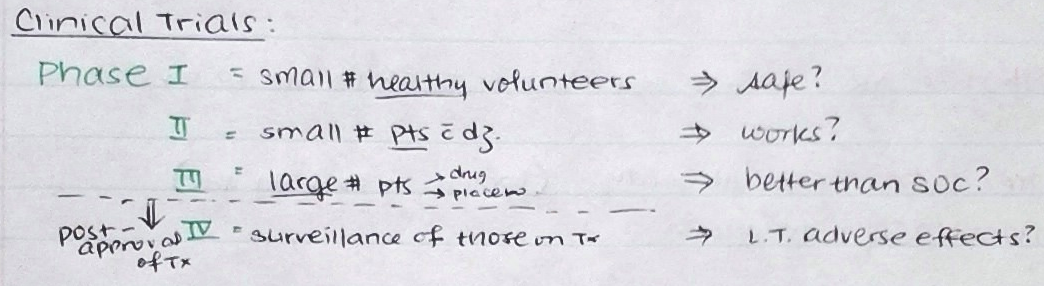 Clinical Trials:
Phase I = small # healthy volunteers ⇒ safe?
II = small # pts c̄ dz. ⇒ works?
III = large # pts → drug → placebo ⇒ better than SOC?
post-approval of Tx ⇓ IV = surveillance of those on Tx ⇒ L.T. adverse effects?